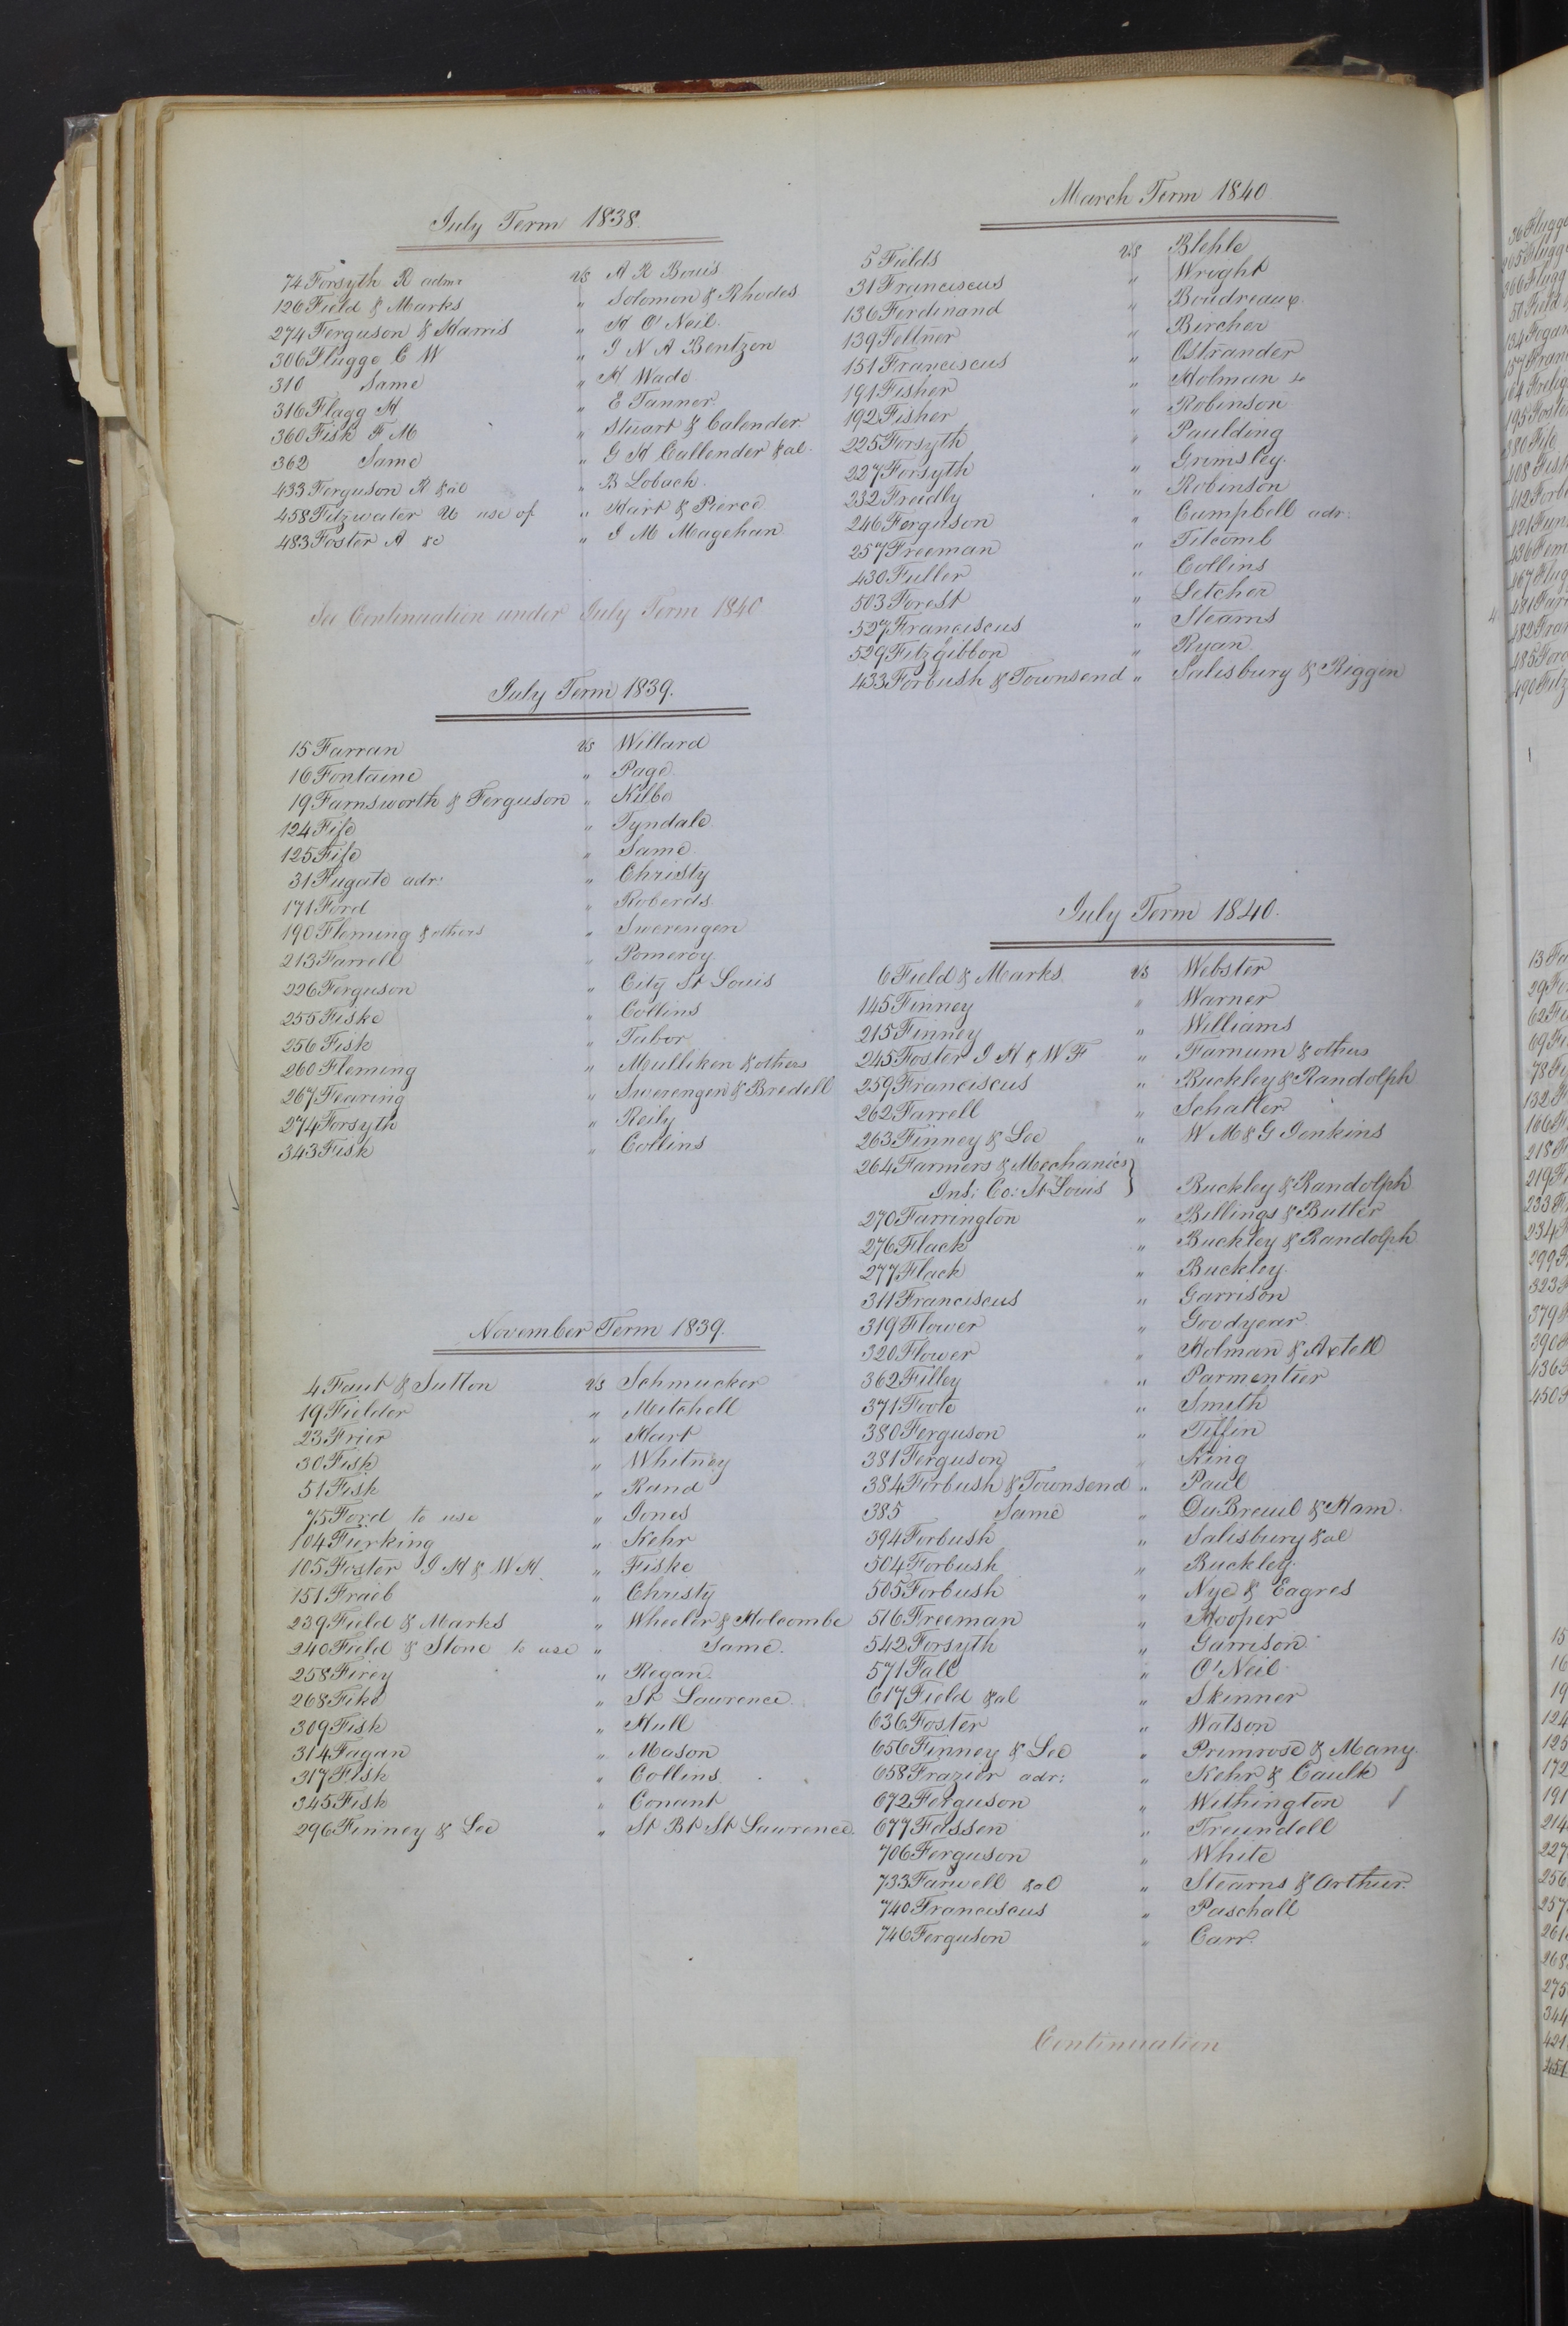 July Term 1838.
74 Forsyth R admr vs A R Bouis
126 Field & Marks " Solomon & Rhodes
274 Ferguson & Harris " H O'Neil.
306 Flugge C W " J N A Bentzen
310 Same " H Wade
316 Flagg H " E Tanner.
360 Fisk F M " Stuart & Calender.
362 Same " G H Callender &al.
433 Ferguson R &al " B Loback.
458 Fitzwater U use of " Hart & Pierce
483 Foster A &c " J M Magehan
See Continuation under July Term 1840
July Term 1839.
15 Farran vs Willard
16 Fontaine " Page.
19 Farnsworth & Ferguson " Kilbe
124 Fife " Tyndale
125 Fife " Same
31 Fugate adr: " Christy
171 Ford " Roberds.
190 Fleming & others " Swerengen
213 Farrell " Pomeroy.
226 Ferguson " City St Louis
255 Fiske " Collins
256 Fisk " Tabor
260 Fleming " Mulliken & others
267 Fearing " Swerengen & Bredell
274 Forsyth " Reily
343 Fisk " Collins
November Term 1839.
4 Faut & Sutton vs Schmucker
19 Fielder " Mitchell
23 Frier " Hart
30 Fisk " Whitney
51 Fisk " Rand
75 Ford to use " Jones
104 Fierking " Kehr
105 Foster J H & W H " Fiske
151 Fraeb " Christy
239 Field & Marks " Wheeler & Holcombe
240 Field & Stone to use " Same.
258 Firey " Regan.
268 Fike " St Lawrence.
309 Fisk " Hull
314 Fagan " Mason
317 Fisk " Collins
345 Fisk " Conant
296 Finney & Lee " St Bt St Lawrence.
March Term 1840
5 Fields vs Blehle
31 Franciscus " Wright
136 Ferdinand " Boudreaux.
139 Feltner " Bircher
151 Franciscus " Ostrander
191 Fisher " Holman
192 Fisher " Robinson
225 Forsyth " Paulding
227 Forsyth " Grimsley.
232 Freidly " Robinson
246 Ferguson " Campbell adr:
257 Freeman " Titcomb
430 Fuller " Collins
503 Forest " Letcher
527 Franciscus " Stearns
529 Fitzgibbon " Ryan
433 Forbush & Townsend " Salisbury & Riggin
July Term 1840.
6 Field & Marks vs Webster
145 Finney " Warner
215 Finney " Williams
245 Foster J H & W F " Farnum & others
259 Franciscus " Buckley & Randolph
262 Farrell " Schatter
263 Finney & Lee " W M & G Jenkins
264 Farmers & Mechanics }
Ins: Co: St Louis } Buckley & Randolph
270 Farrington " Billings & Butler
276 Flack " Buckley & Randolph
277 Flack " Buckley.
311 Franciscus " Garrison
319 Flower " Goodyear.
320 Flower " Holman & Axtell
362 Filley " Parmentier
371 Foote " Smith
380 Ferguson " Tiffin
381 Ferguson " King
384 Forbush & Townsend " Paul
385 Same " DuBreuil & Ham.
394 Forbush " Salisbury &al
504 Forbush " Buckley.
505 Forbush " Nye & Eagres
516 Freeman " Hooper
542 Forsyth " Garrison
571 Fall " O'Neil.
617 Field &al " Skinner
636 Foster " Watson
656 Finney & Lee " Primrose & Many.
658 Frazier adr: " Kehr & Caulk
672 Ferguson " Withington
677 Fassen " Treundell
706 Ferguson " White
733 Farwell &al " Stearns & Arthur.
740 Franciscus " Paschall
746 Ferguson " Carr.
Continuation